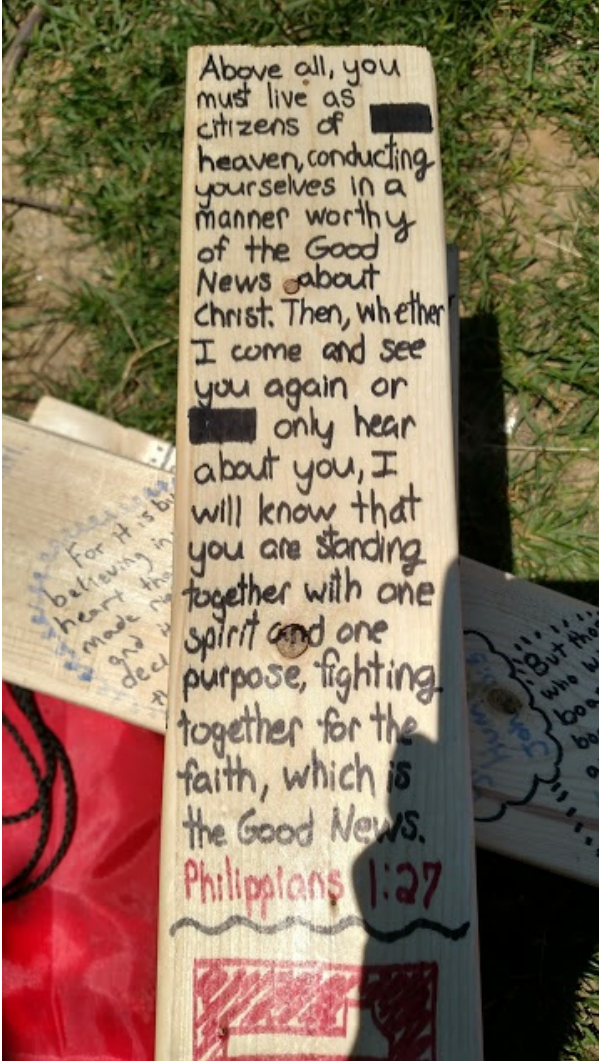 Above all, you
must live as
citizens of
heaven, conducting
yourselves in a
manner worthy
of the Good
News about
Christ. Then, whether
I come and see
you again or
only hear
about you, I
will know that
you are standing
together with one
spirit and one
purpose, fighting
together for the
faith, which is
the Good News.
Philippians 1:27
For it is
believing in
heart
made
and
But
who